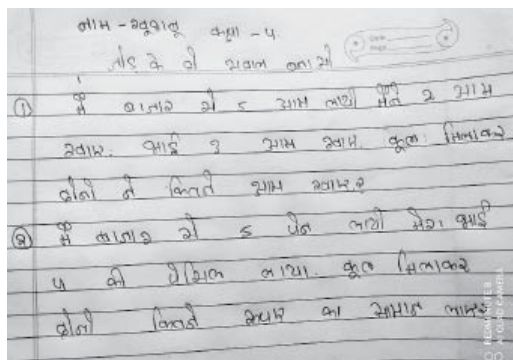 नाम - खुशबू कक्षा - ५
Date
Page
जोड़ के दो सवाल बनाओ
① मैं बाजार से ५ आम लायी मैंने २ आम
खाए. भाई ३ आम खाए. कूल मिलाकर
दोनो ने कितने आम खाए?
② मैं बाजार से ५ पेन लायी मेरा भाई
५ की पेंसिल लाया. कूल मिलाकर
दोनो कितने रूपए का सामान लाए
REDMI NOTE 8
AI QUAD CAMERA